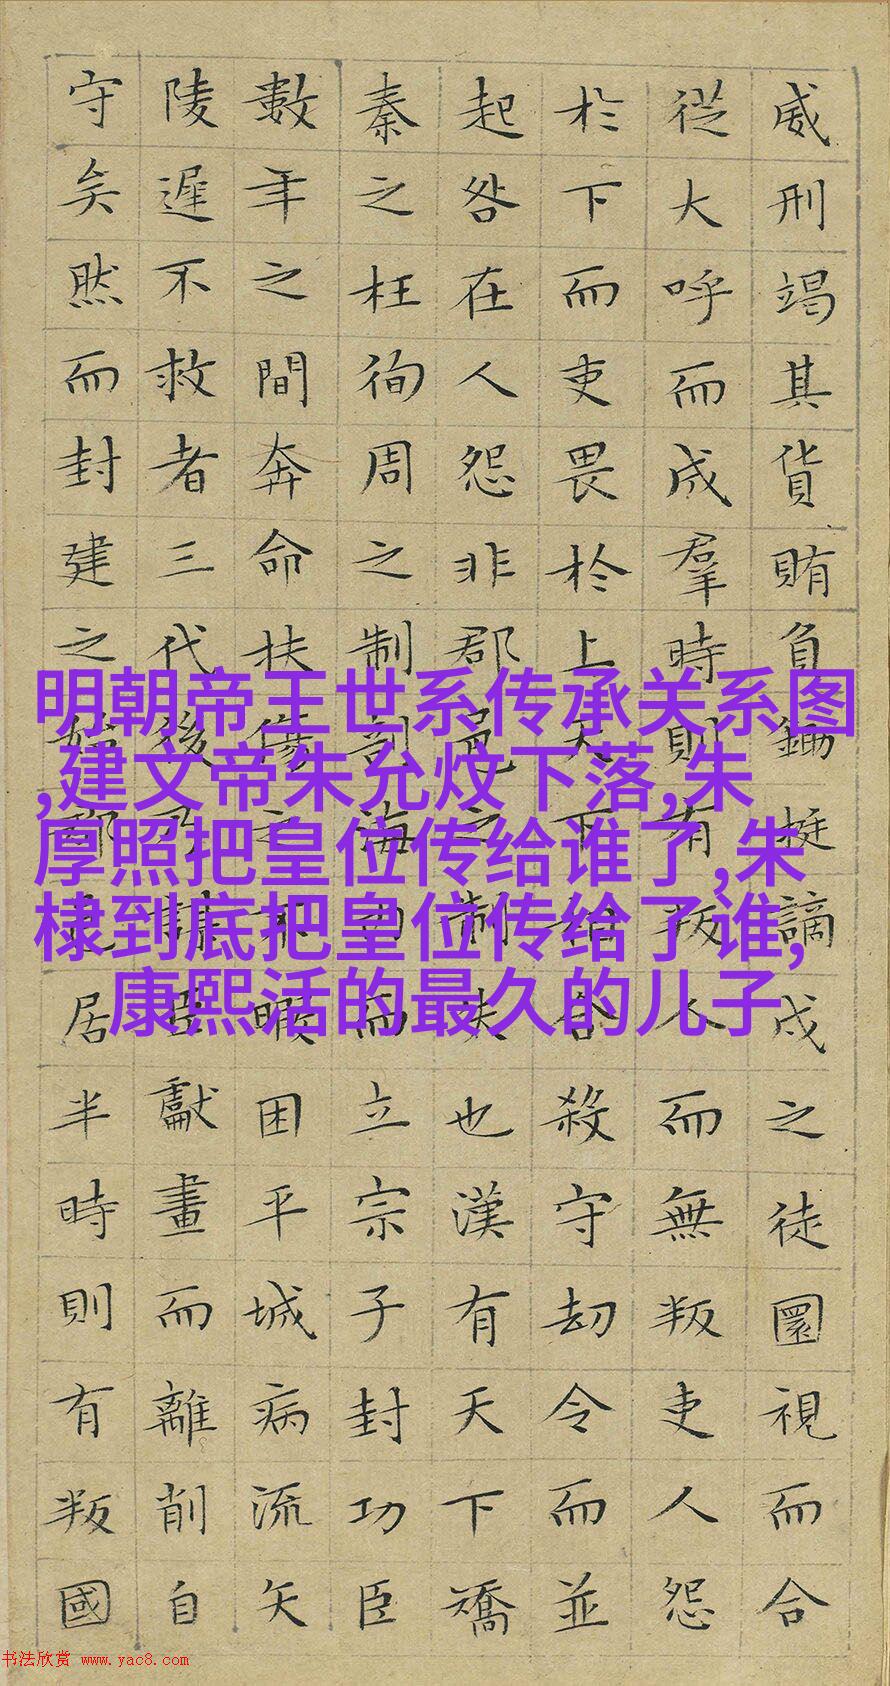 威刑竭其貨賄負鋤梃謫戍之徒圜視而合
從大呼而成羣時則有叛人而無叛吏人怨
於下而吏畏於上天下相合殺守刧令而並
起咎在人怨非郡邑之制失也漢有天下矯
秦之枉徇周之制剖海內而立宗子封功臣
數年之間奔命扶傷之不暇困平城病流矢
陵遲不救者三代後乃謀臣獻畫而離削自
守矣然而封建之始郡邑居半時則有叛國
明朝帝王世系传承关系图
,建文帝朱允炆下落,朱
厚照把皇位传给谁了,朱
棣到底把皇位传给了谁,
康熙活的最久的儿子
书法欣赏 www.yac8.com